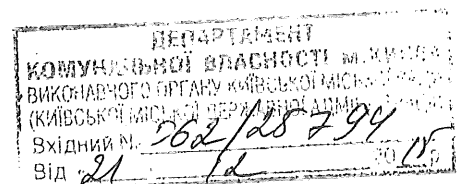 ДЕПАРТАМЕНТ
КОМУНАЛЬНОЇ ВЛАСНОСТІ м. КИЄВА
ВИКОНАВЧОГО ОРГАНУ КИЇВСЬКОЇ МІСЬКОЇ
(КИЇВСЬКОЇ МІСЬКОЇ ДЕРЖАВНОЇ АДМІНІСТРАЦІЇ)
Вхідний № 062/28794
Від 21 12 20